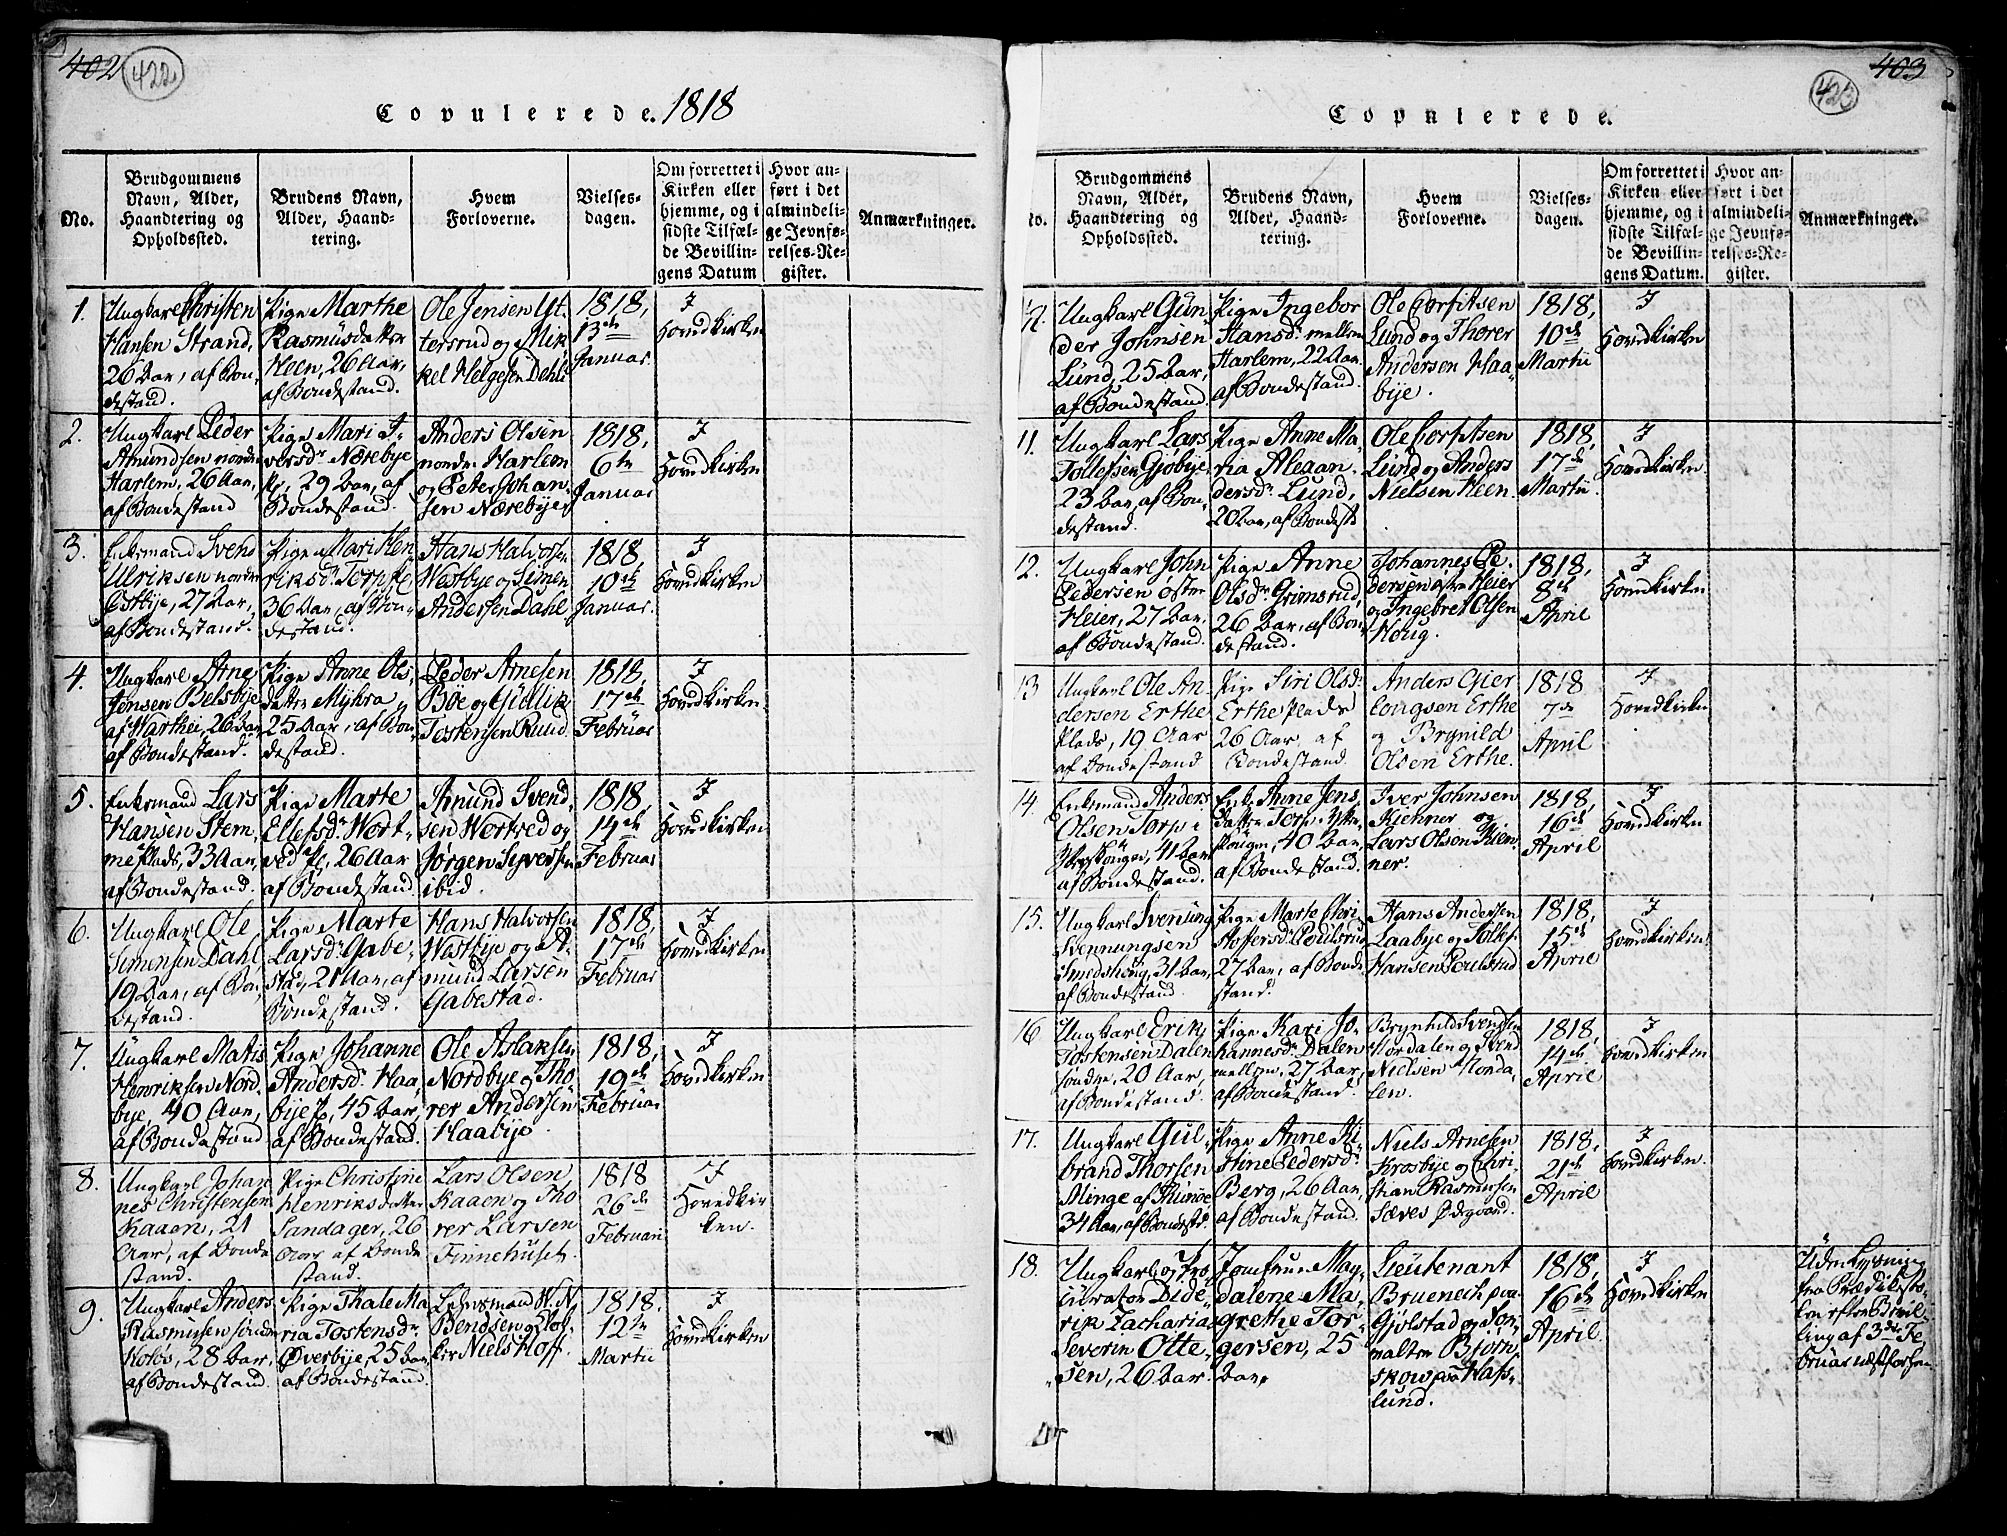 402 422
Copulerede. 1818
No.
Brudgommens
Navn, Alder,
Haandtering og
Opholdssted.
Brudens Navn,
Alder, Haand-
tering.
Hvem
Forloverne.
Vielses-
dagen.
Om forrettet i
Kirken eller
hjemme, og i
sidste Tilfæl-
de Bevillin-
gens Datum
Hvor an-
ført i det
almindeli-
ge Jevnfø-
relses-Re-
gister.
Anmærkninger.
1.
Ungkarl Christen
Hansen Strand,
26 Aar, af Bon-
destand.
Pige Marthe
Rasmusdatter
Heen, 26 Aar,
af Bondestand.
Ole Jensen Ut-
tersrud og Mik-
kel Helgesen Dehli
1818,
13de
Januar.
I
Hovedkirken
2.
Ungkarl Peder
Amundsen nordre
Harlem, 26 Aar,
af Bondestand
Pige Mari I-
versdr Nærebye
Pl, 29 Aar, af
Bondestand.
Anders Olsen
nordre Harlem
og Peter Johan-
sen Nærebye
1818,
6te
Januar
I
Hovedkirken
3.
Enkemand Svend
Ulriksen nordre
Østbye, 27 Aar,
af Bondestand.
Pige Mari Hen-
riksdr Torpet
36 Aar, af Bon-
destand.
Hans Halvorsen
Westbye og Simen
Andersen Dahl
1818
10de
Januar.
I
Hovedkirken
4.
Ungkarl Arne
Jensen Belsbye
af Warthei, 26 Aar
af Bondestand.
Pige Anne Ols-
datter Myhra
25 Aar, af Bon-
destand.
Peder Arnesen
Bøe og Gudlik
Tostensen Rund
1818,
17de
Februar
I
Hovedkirken
5.
Enkemand Lars
Hansen Stem-
me Plads, 33 Aar,
af Bondestand.
Pige Marte
Ellefsdr Wort-
ved Pl, 26 Aar
af Bondestand
Amund Svend-
sen Wortved og
Jørgen Syversen
ibid.
1818,
14de
Februar
I
Hovedkirken
6.
Ungkarl Ole
Simensen Dahl
19 Aar, af Bon-
destand.
Pige Marte
Larsdr Gabe-
stad, 21 Aar, af
Bondestand.
Hans Halvorsen
Westbye og A-
mund Larsen
Gabestad.
1818,
17de
Februar
I
Hovedkirken
7.
Ungkarl Matis
Henriksen Nord-
bye, 40 Aar,
af Bondestand
Pige Johanne
Andersdr Haa-
bye Pl, 45 Aar,
af Bondestand.
Ole Aslaksen
Nordbye og Tho-
rer Andersen
Haabye.
1818,
19de
Februar
I
Hovedkirken
8.
Ungkarl Johan
nes Christensen
Kaaen, 21
Aar, af Bonde
stand.
Pige Christine
Henriksdatter
Sandager, 26
Aar af Bonde
stand.
Lars Olsen
Kaaen og Tho
rer Larsen
Finnehuset.
1818
26de
Februari
I
Hovedkir
ken.
9.
Ungkarl Anders
Rasmussen søndre
Kolos, 28 Aar,
af Bondestand.
Pige Thale Ma
ria Tostensdr
Øverbye, 25 Aar
af Bondestand.
Lehnsmand H. N.
Bendsen og
Niels Hoff.
1818.
12te
Martii
I
Hovedkirken
403 423
Copulerede.
No.
Brudgommens
Navn, Alder,
Haandtering og
Opholdssted.
Brudens Navn,
Alder, Haand-
tering.
Hvem
Forloverne.
Vielses-
dagen.
Om forrettet i
Kirken eller
hjemme, og i
sidste Tilfæl-
de Bevillin-
gens Datum.
Hvor an-
ført i det
almindeli-
ge Jevnfø-
relses-Re-
gister.
Anmærkninger.
Ungkarl Gun
der Johnsen
Lund, 25 Aar,
af Bondestand.
Pige Ingebor
Hansdr mellem
Harlem, 22 Aar.
af Bondestand.
Ole Corfitsen
Lund og Thorer
Andersen Haa-
bye.
1818,
10de
Martii
I
Hovedkirken
11.
Ungkarl Lars
Tollefsen Gjøbye
23 Aar, af Bon-
destand.
Pige Anne Ma-
ria Alexan-
dersdr Lund,
20 Aar, af Bondest
Ole Corfitsen
Lund og Anders
Nielsen Heen.
1818,
17de
Martii.
I
Hovedkirken
12.
Ungkarl John
Pedersen østre
Heier, 27 Aar,
af Bondestand.
Pige Anne
Olsdr Grimsrud,
26 Aar, af Bon-
destand.
Johannes Pe-
dersen østre Heier
og Ingebret Olsen
Houg.
1818,
8de
April
I
Hovedkirken
13
Ungkarl Ole An
dersen Erthe
Plads, 19 Aar
af Bondestand
Pige Siri Olsdr
Erthe Plads
26 Aar af
Bondestand.
Anders Gier
løugsen Erthe
og Brynild
Olsen Erthe.
1818
7de
April
I
Hovedkirken
14.
Enkemand Anders
Olsen Torp i
41 Aar
af Bondestand.
Enke Anne Jens
datter Torp i
40 Aar,
af Bondestand.
Iver Johnsen
Kiehner og
Lars Olsen Kien-
ner.
1818,
16de
April
I
Hovedkirken
15.
Ungkarl Svenung
Svennungsen
Smedshoug, 31 Aar,
af Bondestand.
Pige Marte Chri-
stoffersdr Poulsrud
27 Aar, af Bonde
stand.
Hans Andersen
Laabye og Tollef
Hansen Poulsrud
1818,
15de
April
I
Hovedkirken
16
Ungkarl Erik
Tostensen Dalen
søndre, 20 Aar,
af Bondestand.
Pige Kari Jo-
hannesdr Dalen
mellem, 27 Aar,
af Bondestand.
Brynhild Svendsen
Nordalen og Svend
Nielsen Norda-
len.
1818,
14de
April
I
Hovedkirken
17.
Ungkarl Gul-
brand Thorsen
Menge af
34 Aar, af Bondestd.
Pige Anne Ki-
stine Pedersdr
Berg, 26 Aar,
af Bondestand.
Niels Arnesen
Krosbye og Chri-
stian Rasmusen
Sæves Ødegaard.
1818,
21de
April
I
Hovedkirken
18.
Ungkarl og Pro-
curator Dide-
rik Zacharias
Severin Otte-
sen, 26 Aar.
Jomfrue Mag-
dalene Ma-
grethe Tor-
gersen, 25
Aar.
Lieutenant
Bruenech paa
Gjølstad og
Bjørn-
skow paa Hafs-
lund.
1818,
16de
April
I
Hovedkirken
Uden Lysning
fra Prædikesto-
len efter Bevil-
ling af 3die Fe-
bruar